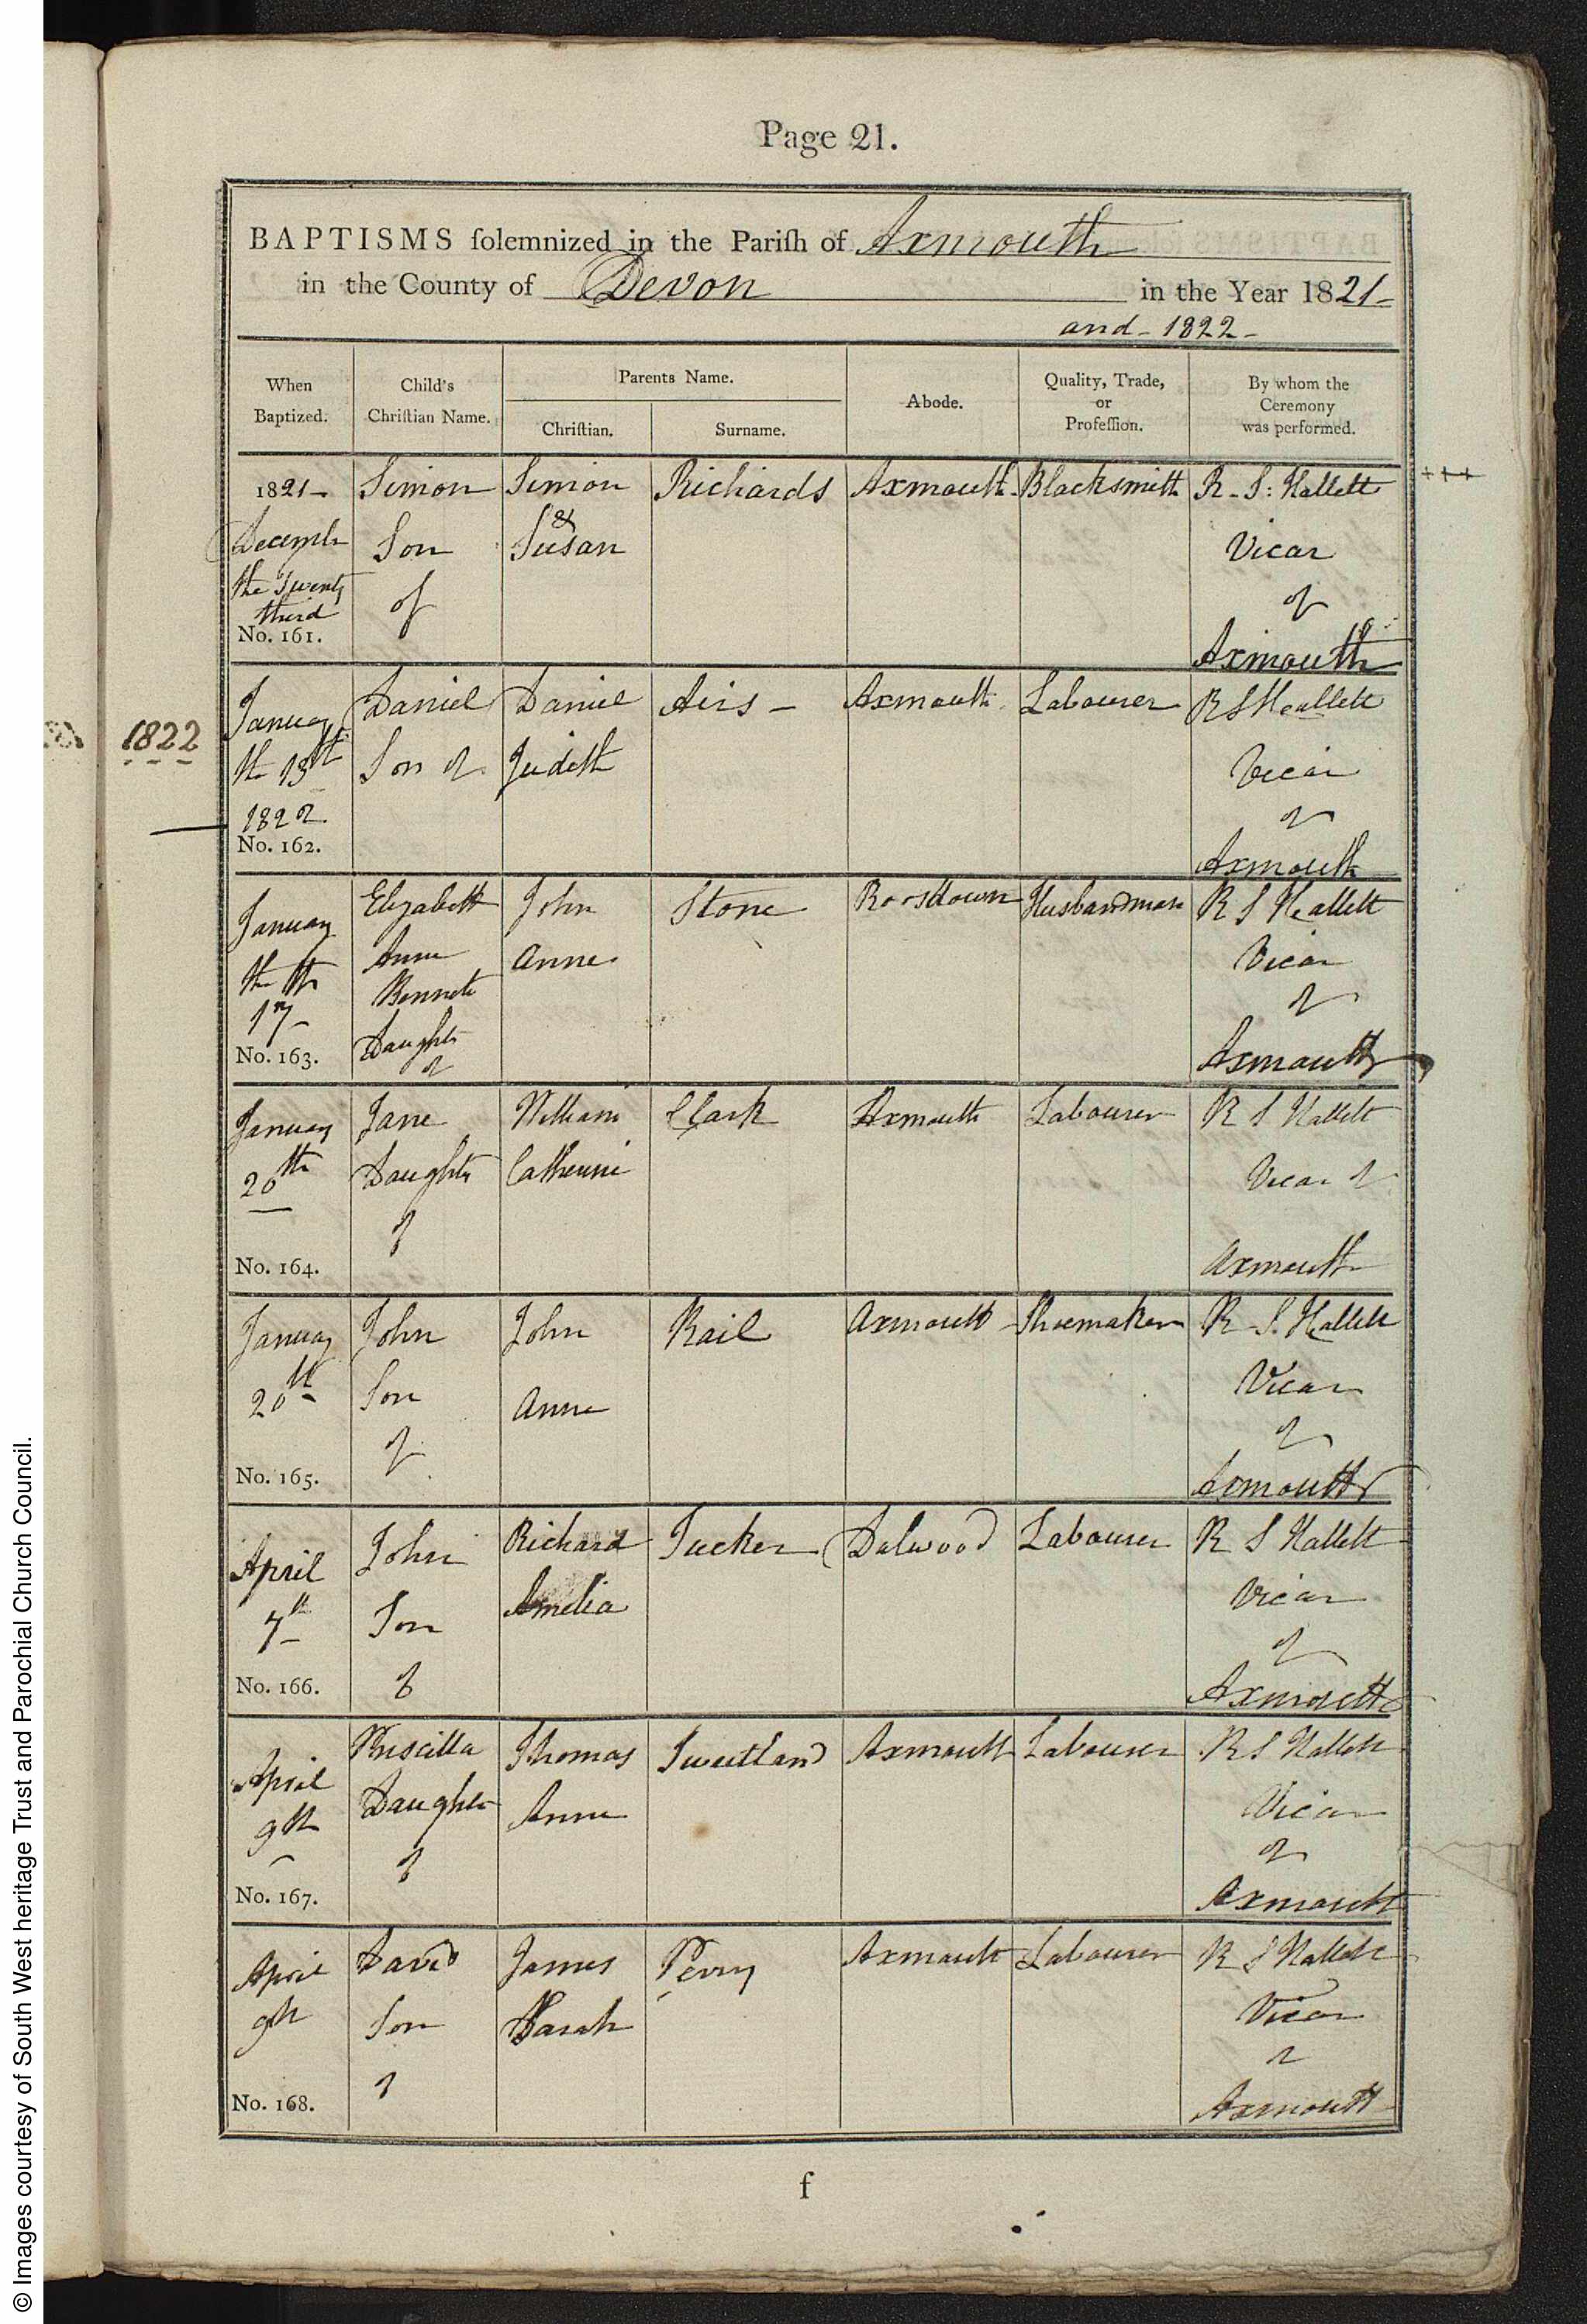 Page 21.
BAPTISMS solemnized in the Parish of Axmouth
in the County of Devon in the Year 1821
and - 1822 -
When Baptized. Child's Christian Name. Parents Name. Christian. Surname. Abode. Quality, Trade, or Profession. By whom the Ceremony was performed.
1821 - Simon Simon Richards Axmouth Blacksmith R. S: Hallett
& 
Decembr Son Susan Vicar
the Twenty of of
third
No. 161. Axmouth
1822
January Daniel Daniel Airs - Axmouth Labourer R S Hallett
th 13th Son of Judith Vicar
1822 of
No. 162. Axmouth
January Elizabeth John Stone Rousdown Husbandman R S Hallett
the Anne Anne Vicar
17 Bennett of
No. 163. Daughter of Axmouth
January Jane William Clark Axmouth Labourer R S Hallett
20th Daughter Catherine Vicar of
of
No. 164. Axmouth
January John John Rail Axmouth Shoemaker R. S. Hallett
20th Son Anne Vicar
of of
No. 165. Axmouth
April John Richard Tucker Dalwood Labourer R S Hallett
7th Son Amelia Vicar
of of
No. 166. Axmouth
April Priscilla Thomas Sweetland Axmouth Labourer R S Hallett
9th Daughter Anne Vicar
of of
No. 167. Axmouth
April David James Perry Axmouth Labourer R S Hallett
9th Son Sarah Vicar
of of
No. 168. Axmouth
f
© Images courtesy of South West heritage Trust and Parochial Church Council.